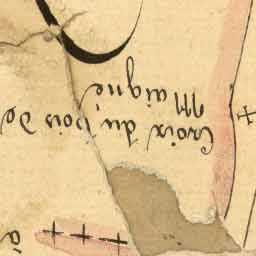 Croix du bois de
Maigne